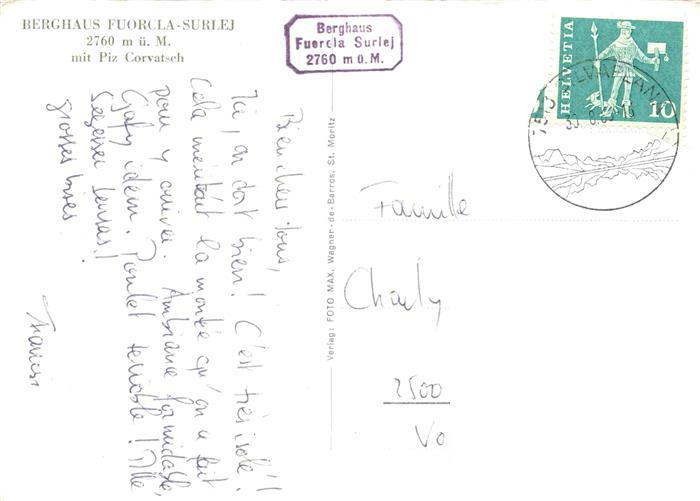 BERGHAUS FUORCLA-SURLEJ
2760 m ü. M.
mit Piz Corvatsch
Berghaus
Fuorcla Surlej
2760 m ü.M.
HELVETIA
10
Bien chers tous,
Ici, on dort bien! C'est très isolé!
Cela méritait la montée qu'on a fait
pour y arriver. Ambiance formidable,
Gaby idem. Poulet terrible! Mlle
sensas!
grosses bises
Verlag: FOTO MAX, Wagner-de-Barros, St. Moritz
Famille
Charly
2500